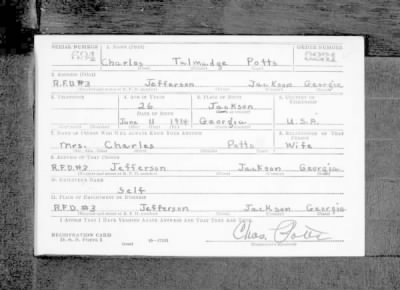 SERIAL NUMBER 1. NAME (Print) ORDER NUMBER
Charles Talmadge Potts
(First) (Middle) (Last)
2. ADDRESS (Print)
R.F.D.#3 Jefferson Jackson Georgia
3. TELEPHONE 4. AGE IN YEARS 5. PLACE OF BIRTH 6. COUNTRY OF CITIZENSHIP
26 Jackson
DATE OF BIRTH
June 11 1914 Georgia U.S.A.
7. NAME OF PERSON WHO WILL ALWAYS KNOW YOUR ADDRESS 8. RELATIONSHIP OF THAT PERSON
Mrs. Charles Potts Wife
9. ADDRESS OF THAT PERSON
R.F.D.#2 Jefferson Jackson Georgia
10. EMPLOYER'S NAME
Self
11. PLACE OF EMPLOYMENT OR BUSINESS
R.F.D. #3 Jefferson Jackson Georgia
I AFFIRM THAT I HAVE VERIFIED ABOVE ANSWERS AND THAT THEY ARE TRUE.
REGISTRATION CARD
D. S. S. FORM 1 (over) 16—17105
Chas. Potts